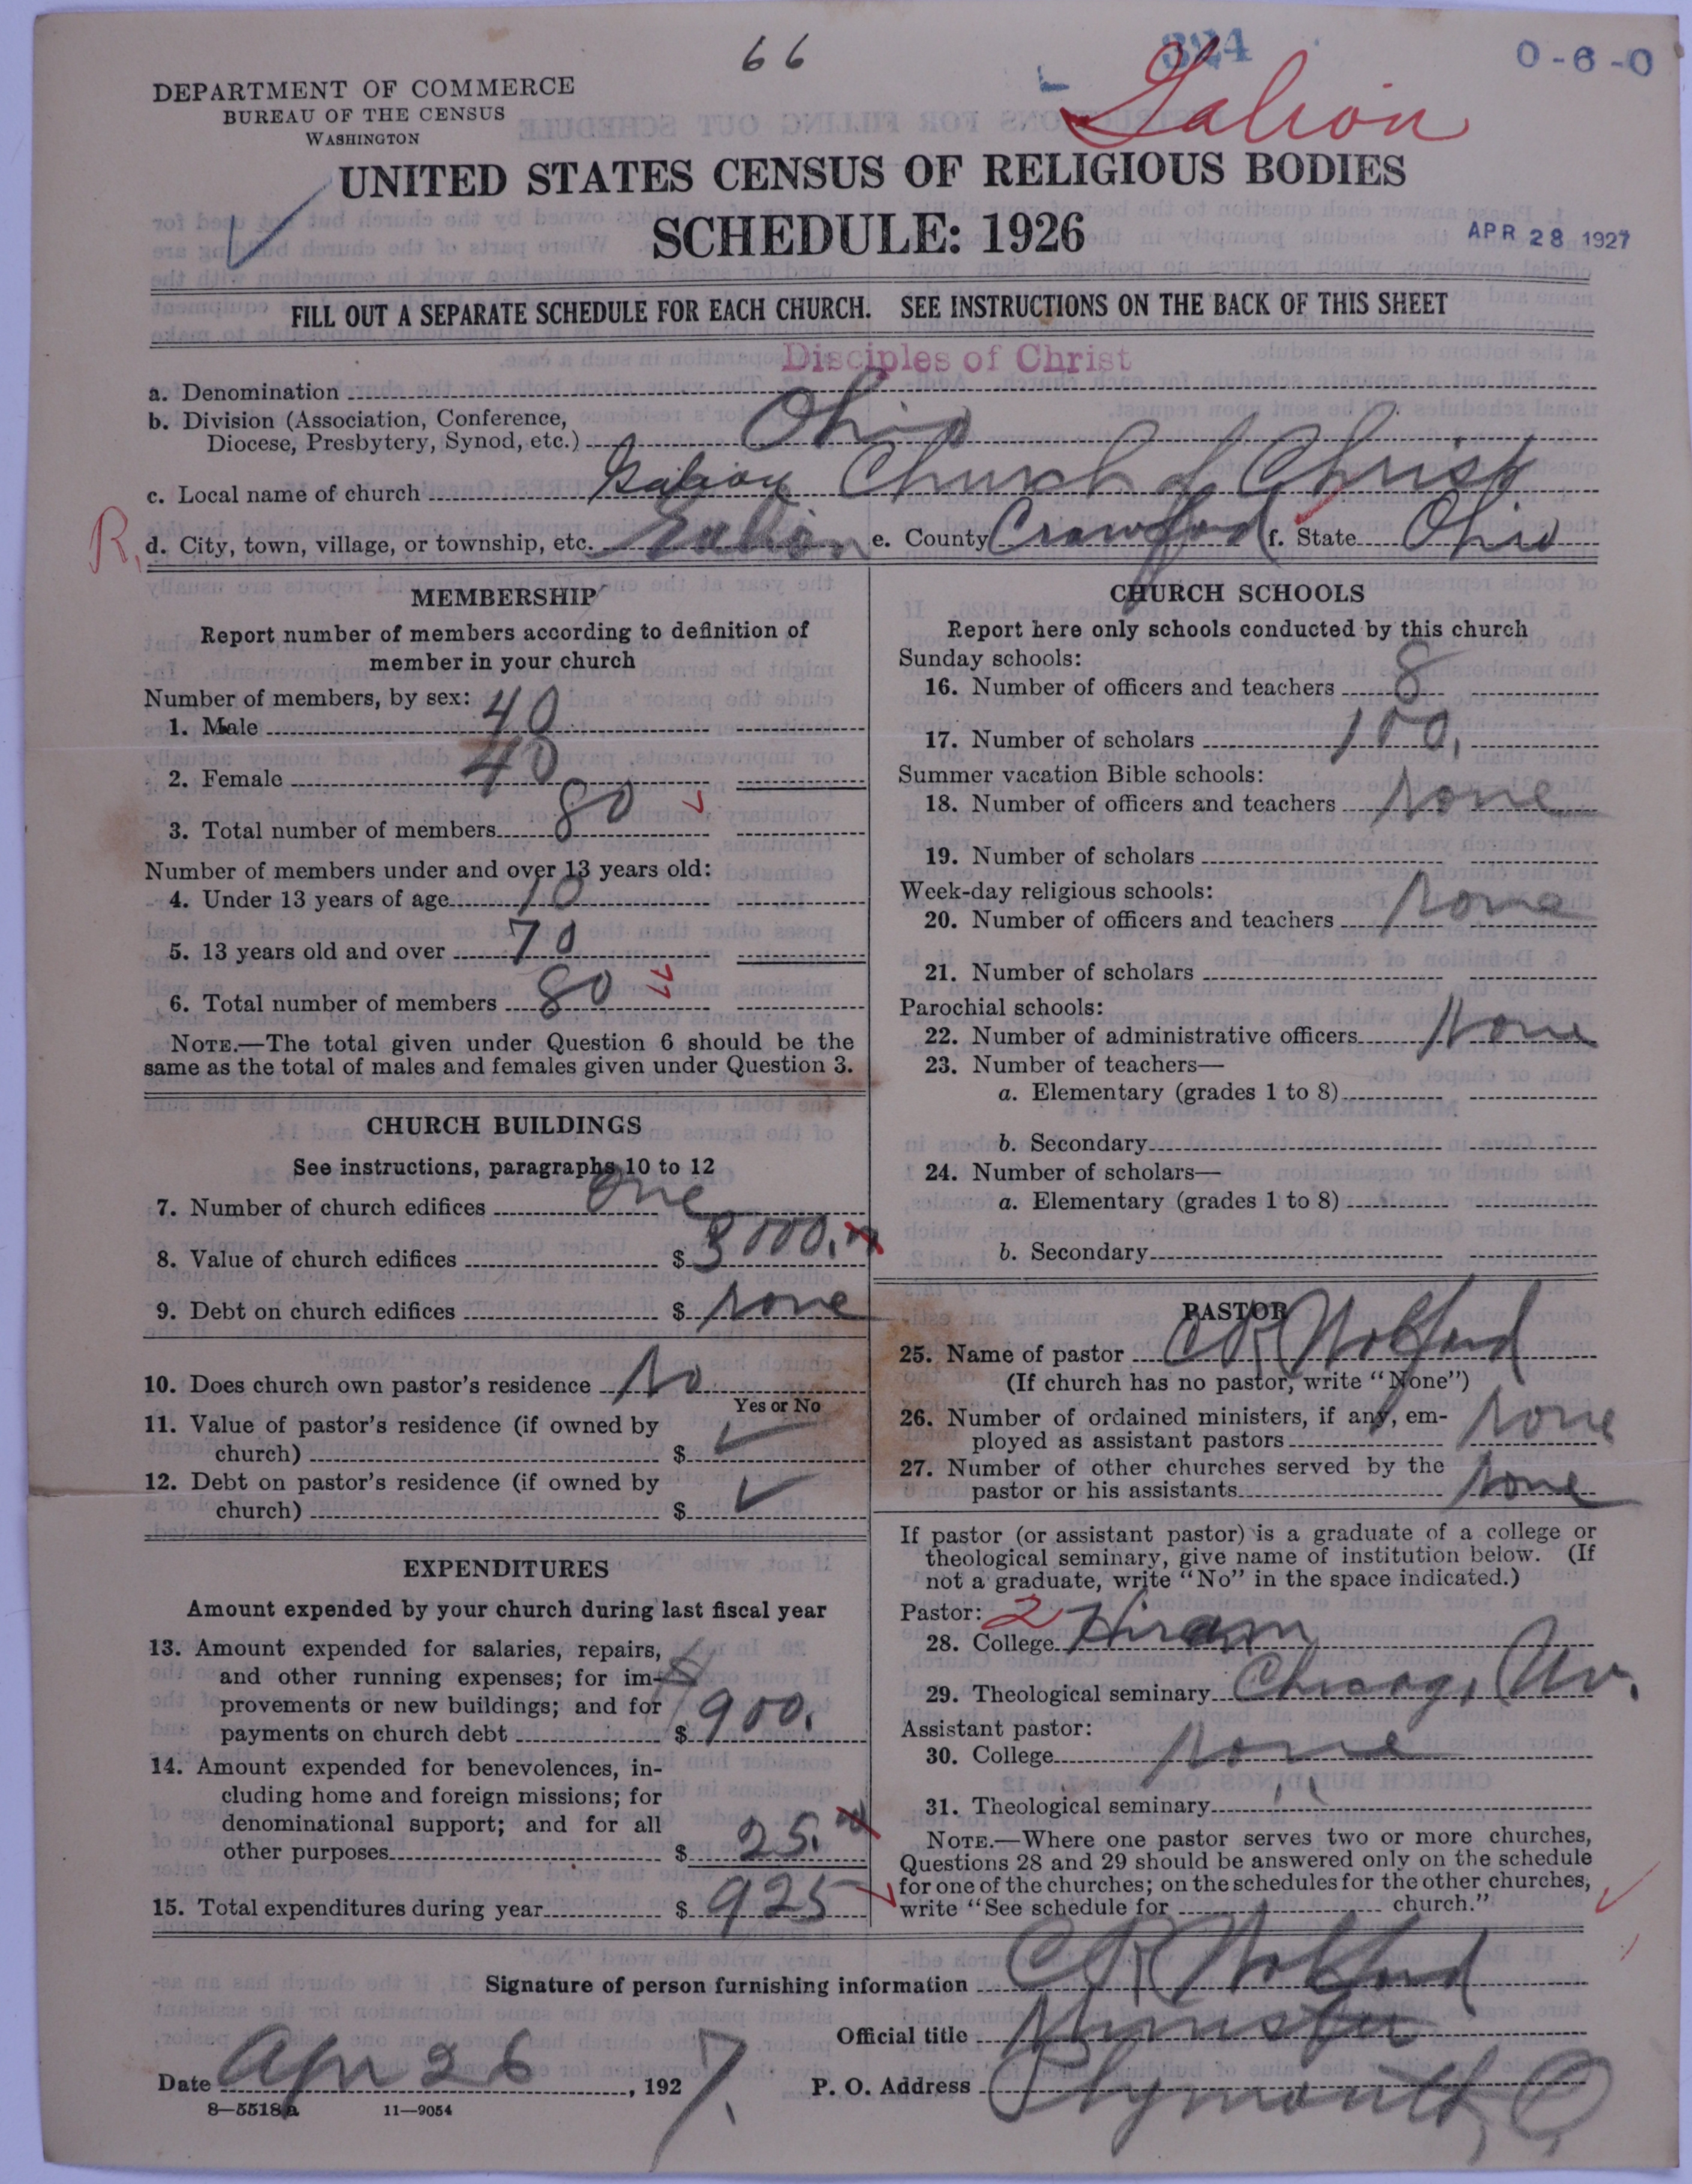 66
324
0-6-0
Galion
DEPARTMENT OF COMMERCE
BUREAU OF THE CENSUS
WASHINGTON
UNITED STATES CENSUS OF RELIGIOUS BODIES
SCHEDULE: 1926
APR 28 1927
FILL OUT A SEPARATE SCHEDULE FOR EACH CHURCH. SEE INSTRUCTIONS ON THE BACK OF THIS SHEET
Disciples of Christ
a. Denomination
b. Division (Association, Conference,
Diocese, Presbytery, Synod, etc.) Ohio
c. Local name of church Galion Church of Christ
R, d. City, town, village, or township, etc. Galion e. County Crawford f. State Ohio
MEMBERSHIP
Report number of members according to definition of
member in your church
Number of members, by sex:
1. Male 40
2. Female 40
3. Total number of members 80
Number of members under and over 13 years old:
4. Under 13 years of age 10
5. 13 years old and over 70
6. Total number of members 80
NOTE.—The total given under Question 6 should be the
same as the total of males and females given under Question 3.
CHURCH BUILDINGS
See instructions, paragraphs 10 to 12
7. Number of church edifices one
8. Value of church edifices $ 3000.
9. Debt on church edifices $ none
10. Does church own pastor's residence No
Yes or No
11. Value of pastor's residence (if owned by
church) $
12. Debt on pastor's residence (if owned by
church) $
EXPENDITURES
Amount expended by your church during last fiscal year
13. Amount expended for salaries, repairs,
and other running expenses; for im-
provements or new buildings; and for
payments on church debt $ 900.
14. Amount expended for benevolences, in-
cluding home and foreign missions; for
denominational support; and for all
other purposes $ 25.
15. Total expenditures during year $ 925
CHURCH SCHOOLS
Report here only schools conducted by this church
Sunday schools:
16. Number of officers and teachers 8
17. Number of scholars 100.
Summer vacation Bible schools:
18. Number of officers and teachers none
19. Number of scholars
Week-day religious schools:
20. Number of officers and teachers none
21. Number of scholars
Parochial schools:
22. Number of administrative officers None
23. Number of teachers—
a. Elementary (grades 1 to 8)
b. Secondary
24. Number of scholars—
a. Elementary (grades 1 to 8)
b. Secondary
PASTOR
25. Name of pastor C R
(If church has no pastor, write "None")
26. Number of ordained ministers, if any, em-
ployed as assistant pastors none
27. Number of other churches served by the
pastor or his assistants none
If pastor (or assistant pastor) is a graduate of a college or
theological seminary, give name of institution below. (If
not a graduate, write "No" in the space indicated.)
Pastor: 2
28. College Hiram
29. Theological seminary
Assistant pastor:
30. College none
31. Theological seminary "
NOTE.—Where one pastor serves two or more churches,
Questions 28 and 29 should be answered only on the schedule
for one of the churches; on the schedules for the other churches,
write "See schedule for church."
Signature of person furnishing information C R
Official title Minister
Date Apr 26, 1927. P. O. Address Plymouth, O.
8—5518a 11—9054